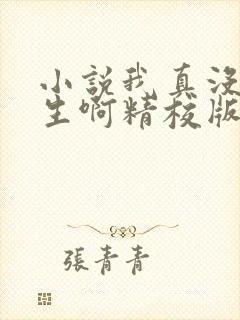 小說我真没
生啊精校版
張青青